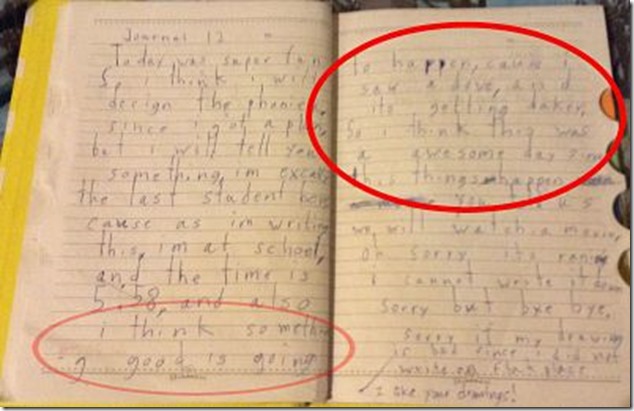 Journal 12
Today was super fun
So, i think i will
design the phone,
since i got a plan,
but i will tell you
something, im
the last student here
cause as im writing
this, im at school,
and, the time is
5.58, and also
i think somethi
ng good is going
to happen, cause i
saw a dove, and
its getting daker,
So i think this was
a awesome day
this things happen
you us
we will watch a movie,
oh sorry its raning
i cannot write it down
sorry but bye bye,
sorry if my drawing
is bad since i did not
write on flat place
I like your drawings!